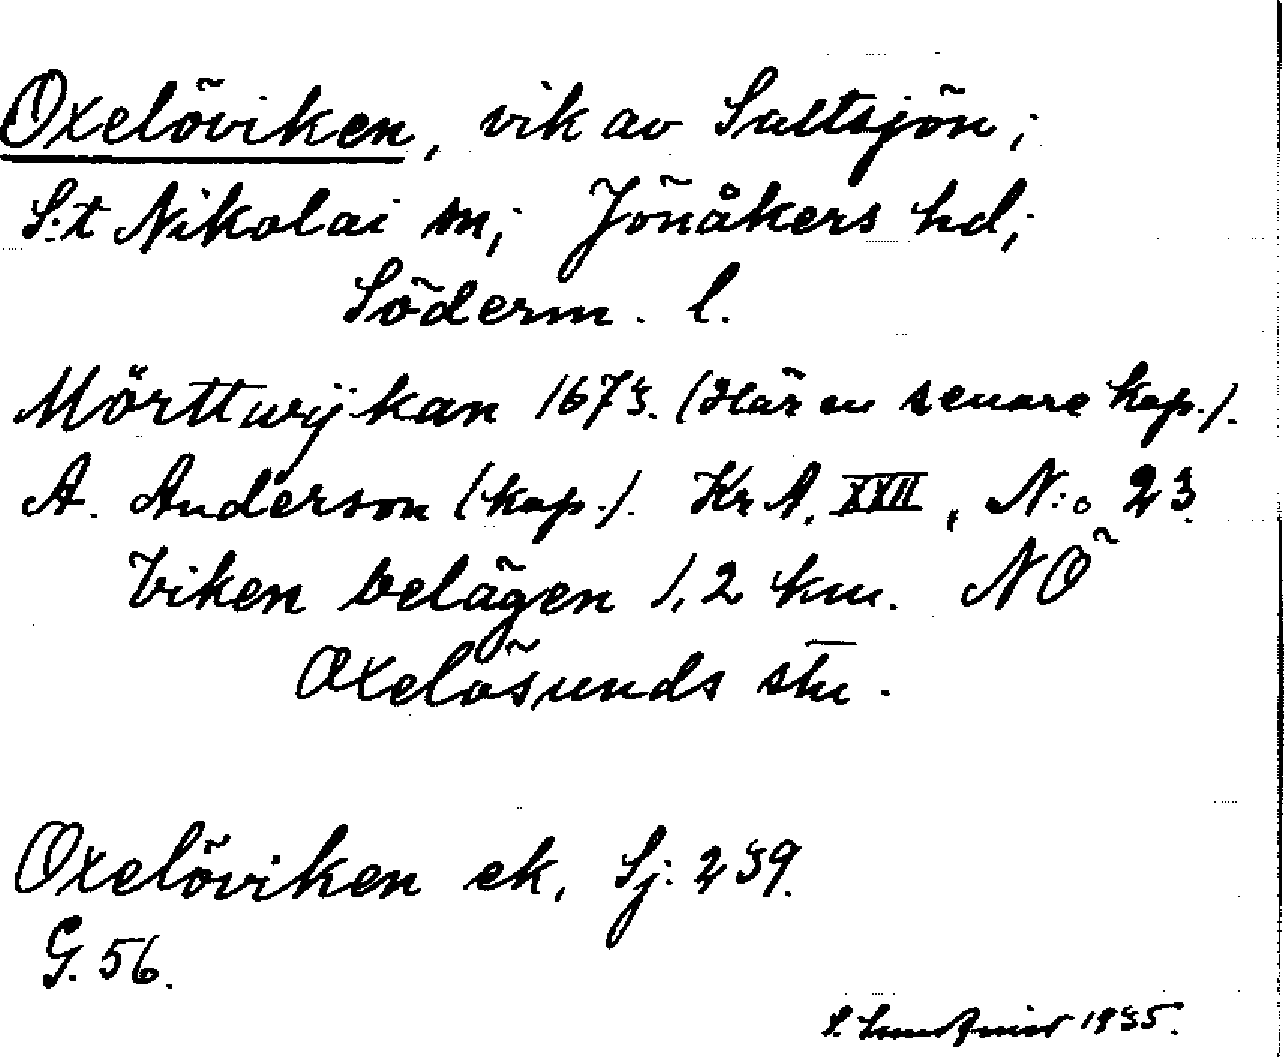 Oxelöviken, vik av Saltsjön;
S:t Nikolai sn; Jönåkers hd;
Söderm. l.
Mörttwijkan 1673. (Här en senare kop.).
A. Anderson (kop.). Kr A. XXII, N:o 23.
Viken belägen 1,2 km. NÖ
Oxelösunds stn.
Oxelöviken ek. Sj. 239.
G. 56.
S. 1935.